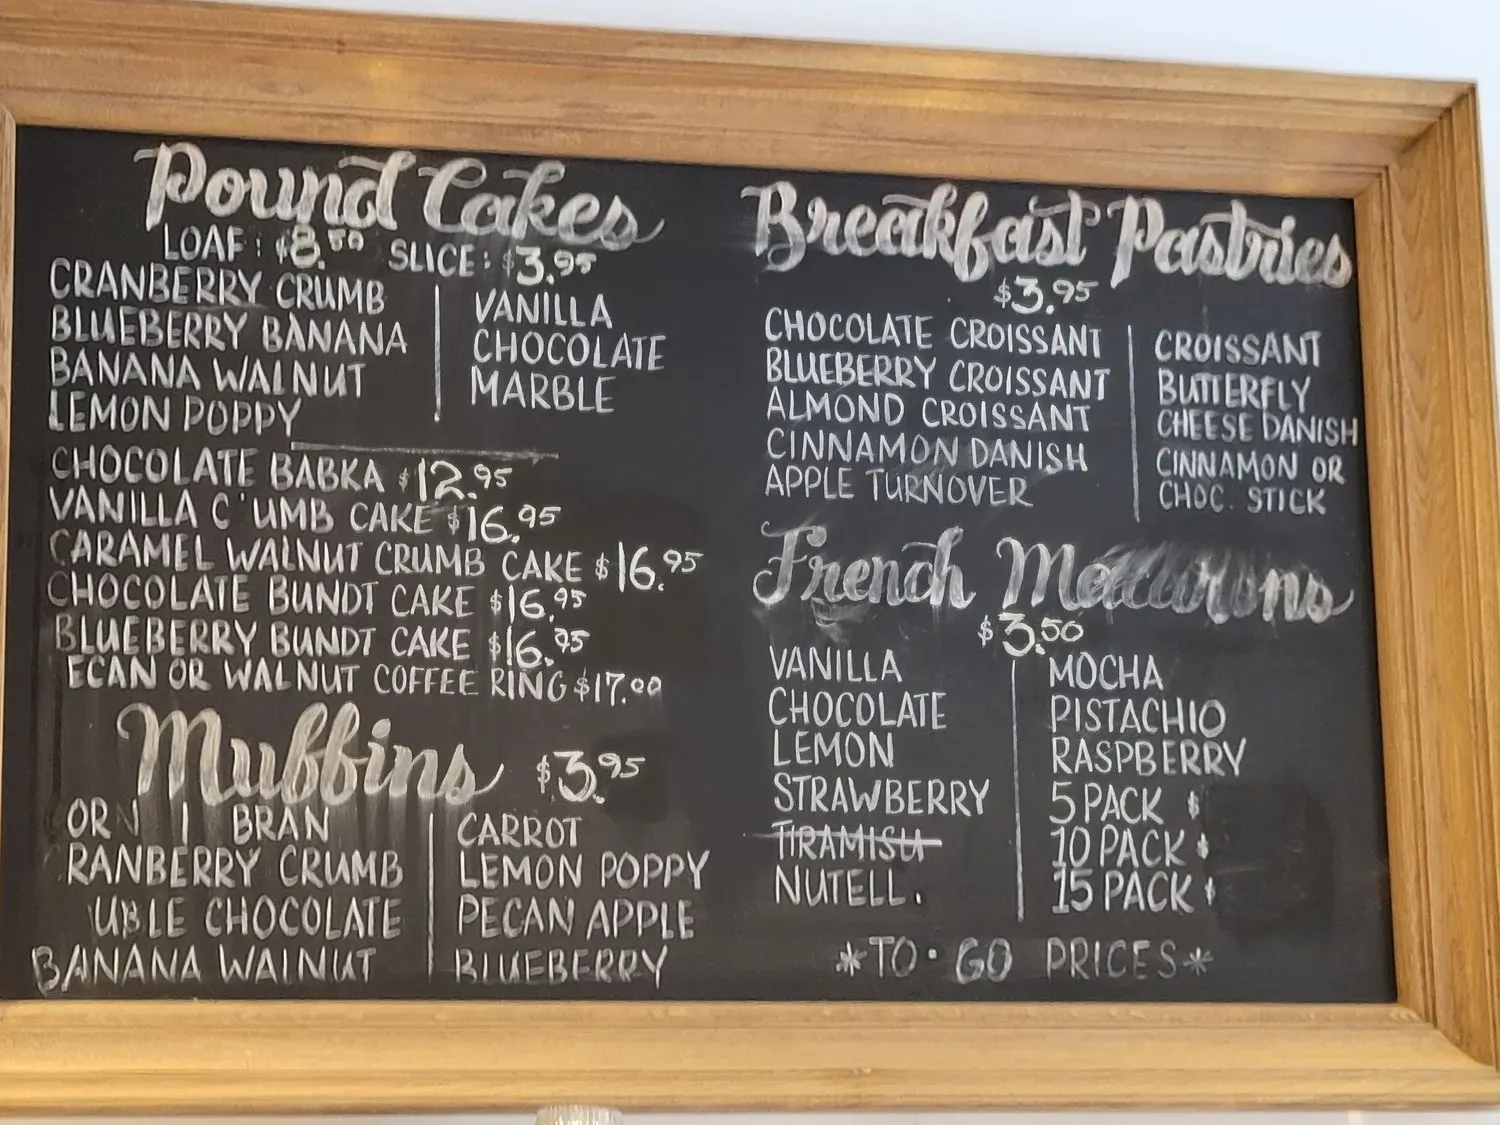 Pound Cakes
LOAF: $8.50 SLICE: $3.95
CRANBERRY CRUMB
BLUEBERRY BANANA
BANANA WALNUT
LEMON POPPY
VANILLA
CHOCOLATE
MARBLE
CHOCOLATE BABKA $12.95
VANILLA C UMB CAKE $16.95
CARAMEL WALNUT CRUMB CAKE $16.95
CHOCOLATE BUNDT CAKE $16.95
BLUEBERRY BUNDT CAKE $16.95
ECAN OR WALNUT COFFEE RING $17.00
Muffins $3.95
ORN BRAN
RANBERRY CRUMB
UBLE CHOCOLATE
BANANA WALNUT
CARROT
LEMON POPPY
PECAN APPLE
BLUEBERRY
Breakfast Pastries
$3.95
CHOCOLATE CROISSANT
BLUEBERRY CROISSANT
ALMOND CROISSANT
CINNAMON DANISH
APPLE TURNOVER
CROISSANT
BUTTERFLY
CHEESE DANISH
CINNAMON OR
CHOC. STICK
French Macarons
$3.50
VANILLA
CHOCOLATE
LEMON
STRAWBERRY
TIRAMISU
NUTELL.
MOCHA
PISTACHIO
RASPBERRY
5 PACK $
10 PACK $
15 PACK $
*TO·GO PRICES*